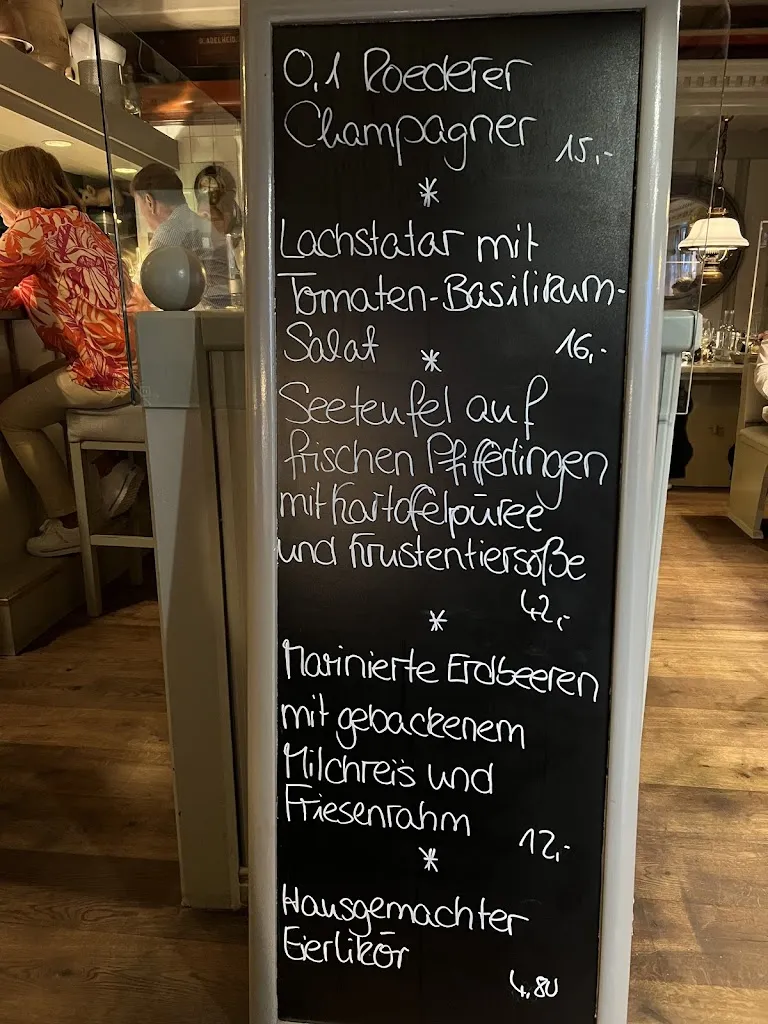 0,1 Roederer
Champagner 15,-
*
Lachstatar mit
Tomaten-Basilikum-
Salat 16,-
*
Seeteufel auf
frischen Pfifferlingen
mit Kartofelpüree
und Krustentiersoße
42,-
*
Marinierte Erdbeeren
mit gebackenem
Milchreis und
Friesenrahm 12,-
*
Hausgemachter
Eierlikör
4,80